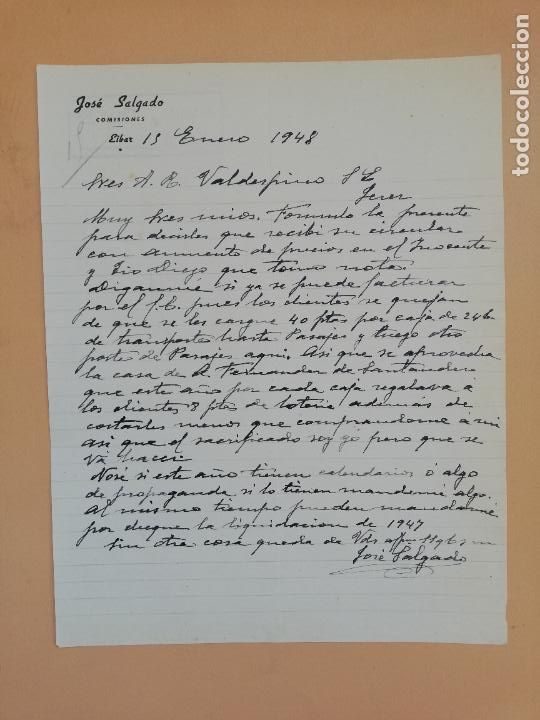 José Salgado
COMISIONES
Eibar 15 Enero 1948
Sres A. R. Valdespino S L
Jerez
Muy Sres mios. Formulo la presente
para decirles que recibi su circular
con aumento de precios en el Inocente
y Tio Diego que tomo nota.
Diganme si ya se puede facturar
por el f.c. pues los clientes se quejan
de que se les cargue 40 ptas por caja de 24 b
de transporte hasta Pasajes y luego otro
porte de Pasajes aqui. Asi que se aprovecha
la casa de A. Fernandez de Santander
que este año por cada caja regalava á
los clientes 3 pts de loteria además de
costarles menos que comprandome á mi
asi que el sacrificado soy yó pero que se
vá hacer.
Nosé si este año tienen calendarios ó algo
de propaganda si lo tienen mandenme algo.
Al mismo tiempo pueden mandarme
por cheque la liquidacion de 1947
Sin otra cosa queda de Vds
José Salgado
todocoleccion